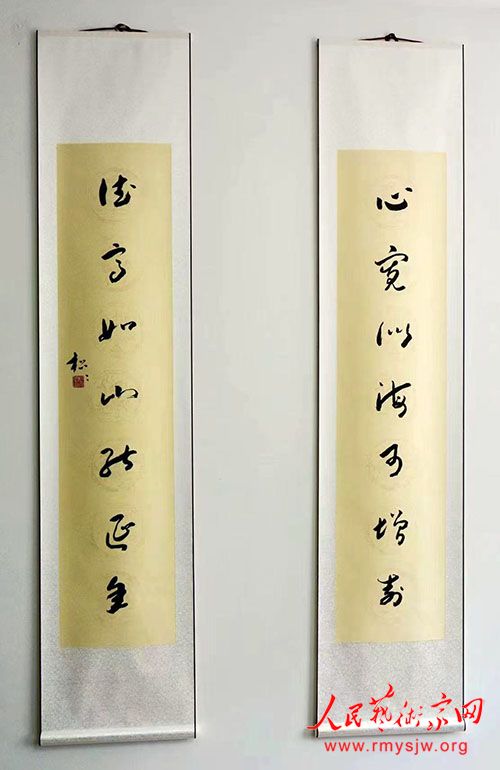 心宽似海可增寿
德高如山能延年
人民藝術家网
www.rmysjw.org